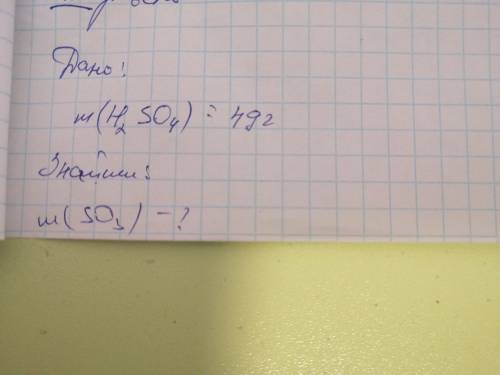 Дано:
m(H₂SO₄) = 49г
Знайти:
m(SO₃) - ?